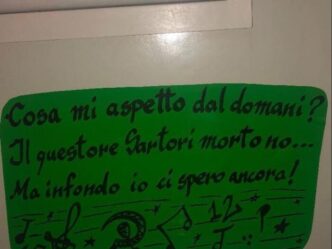 Cosa mi aspetto dal domani?
Il questore Sartori morto no...
Ma infondo io ci spero ancora!
12